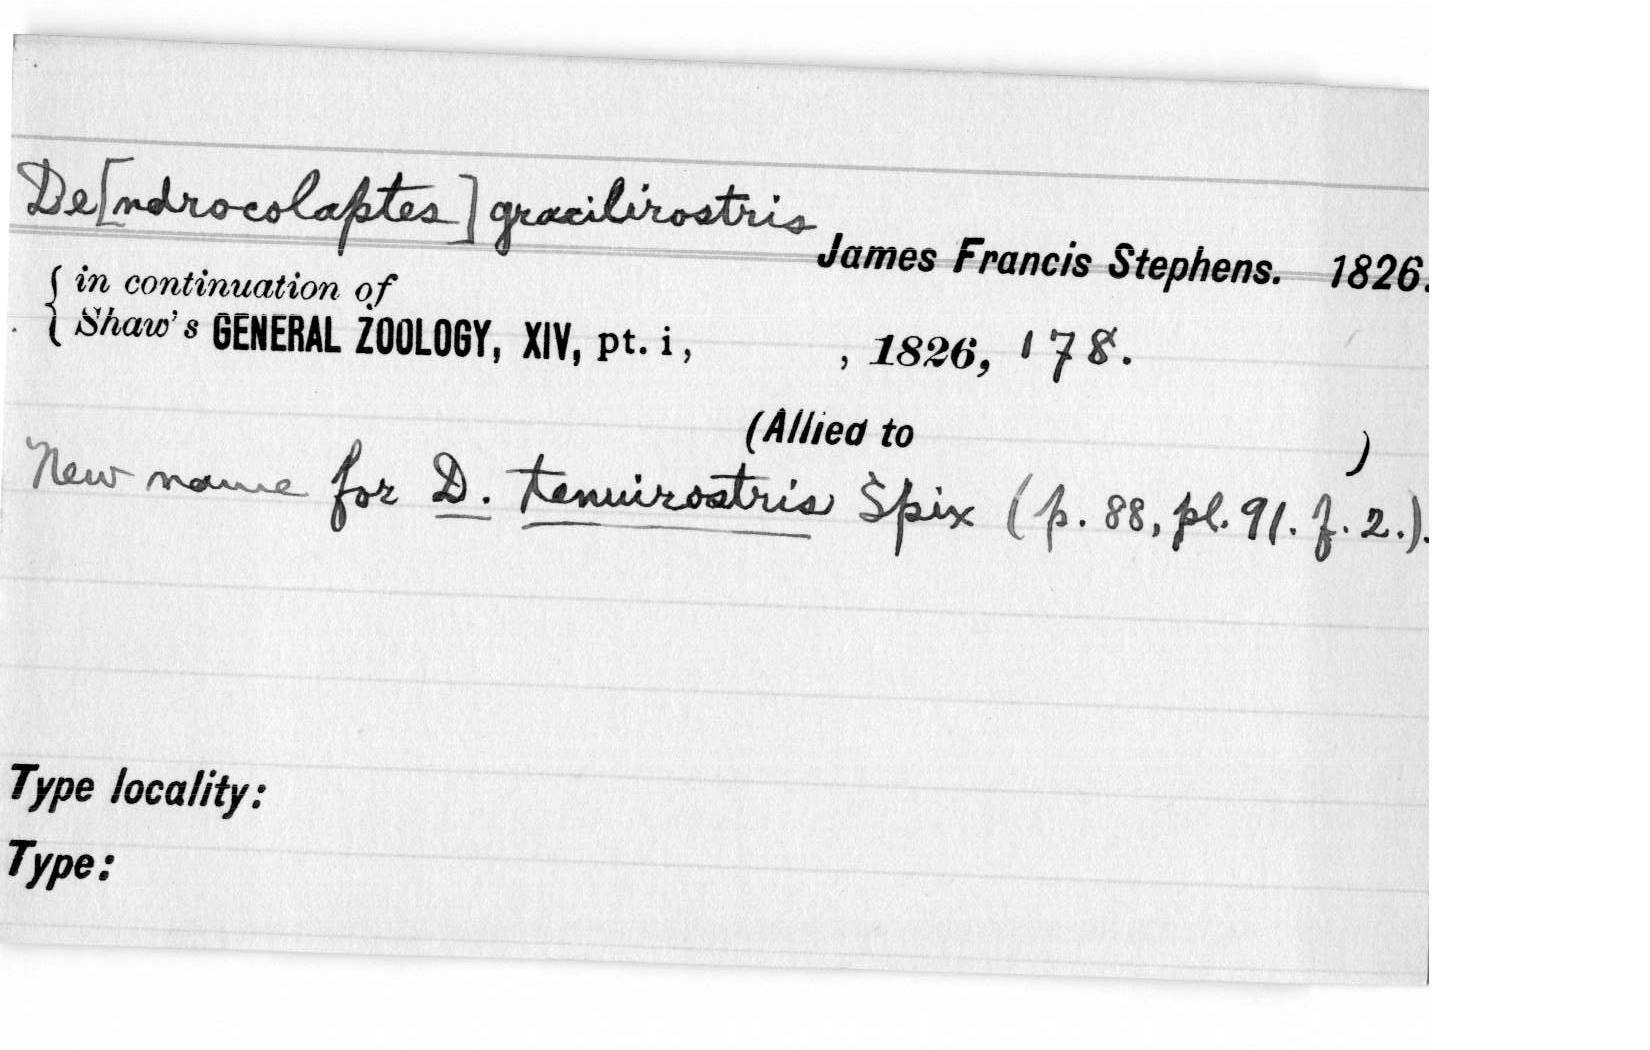 De[ndrocolaptes] gracilirostris
James Francis Stephens. 1826.
{ in continuation of
Shaw's GENERAL ZOOLOGY, XIV, pt. i, , 1826, 178.
(Allied to )
New name for D. tenuirostris Spix (p. 88, pl. 91. f. 2.).
Type locality:
Type: